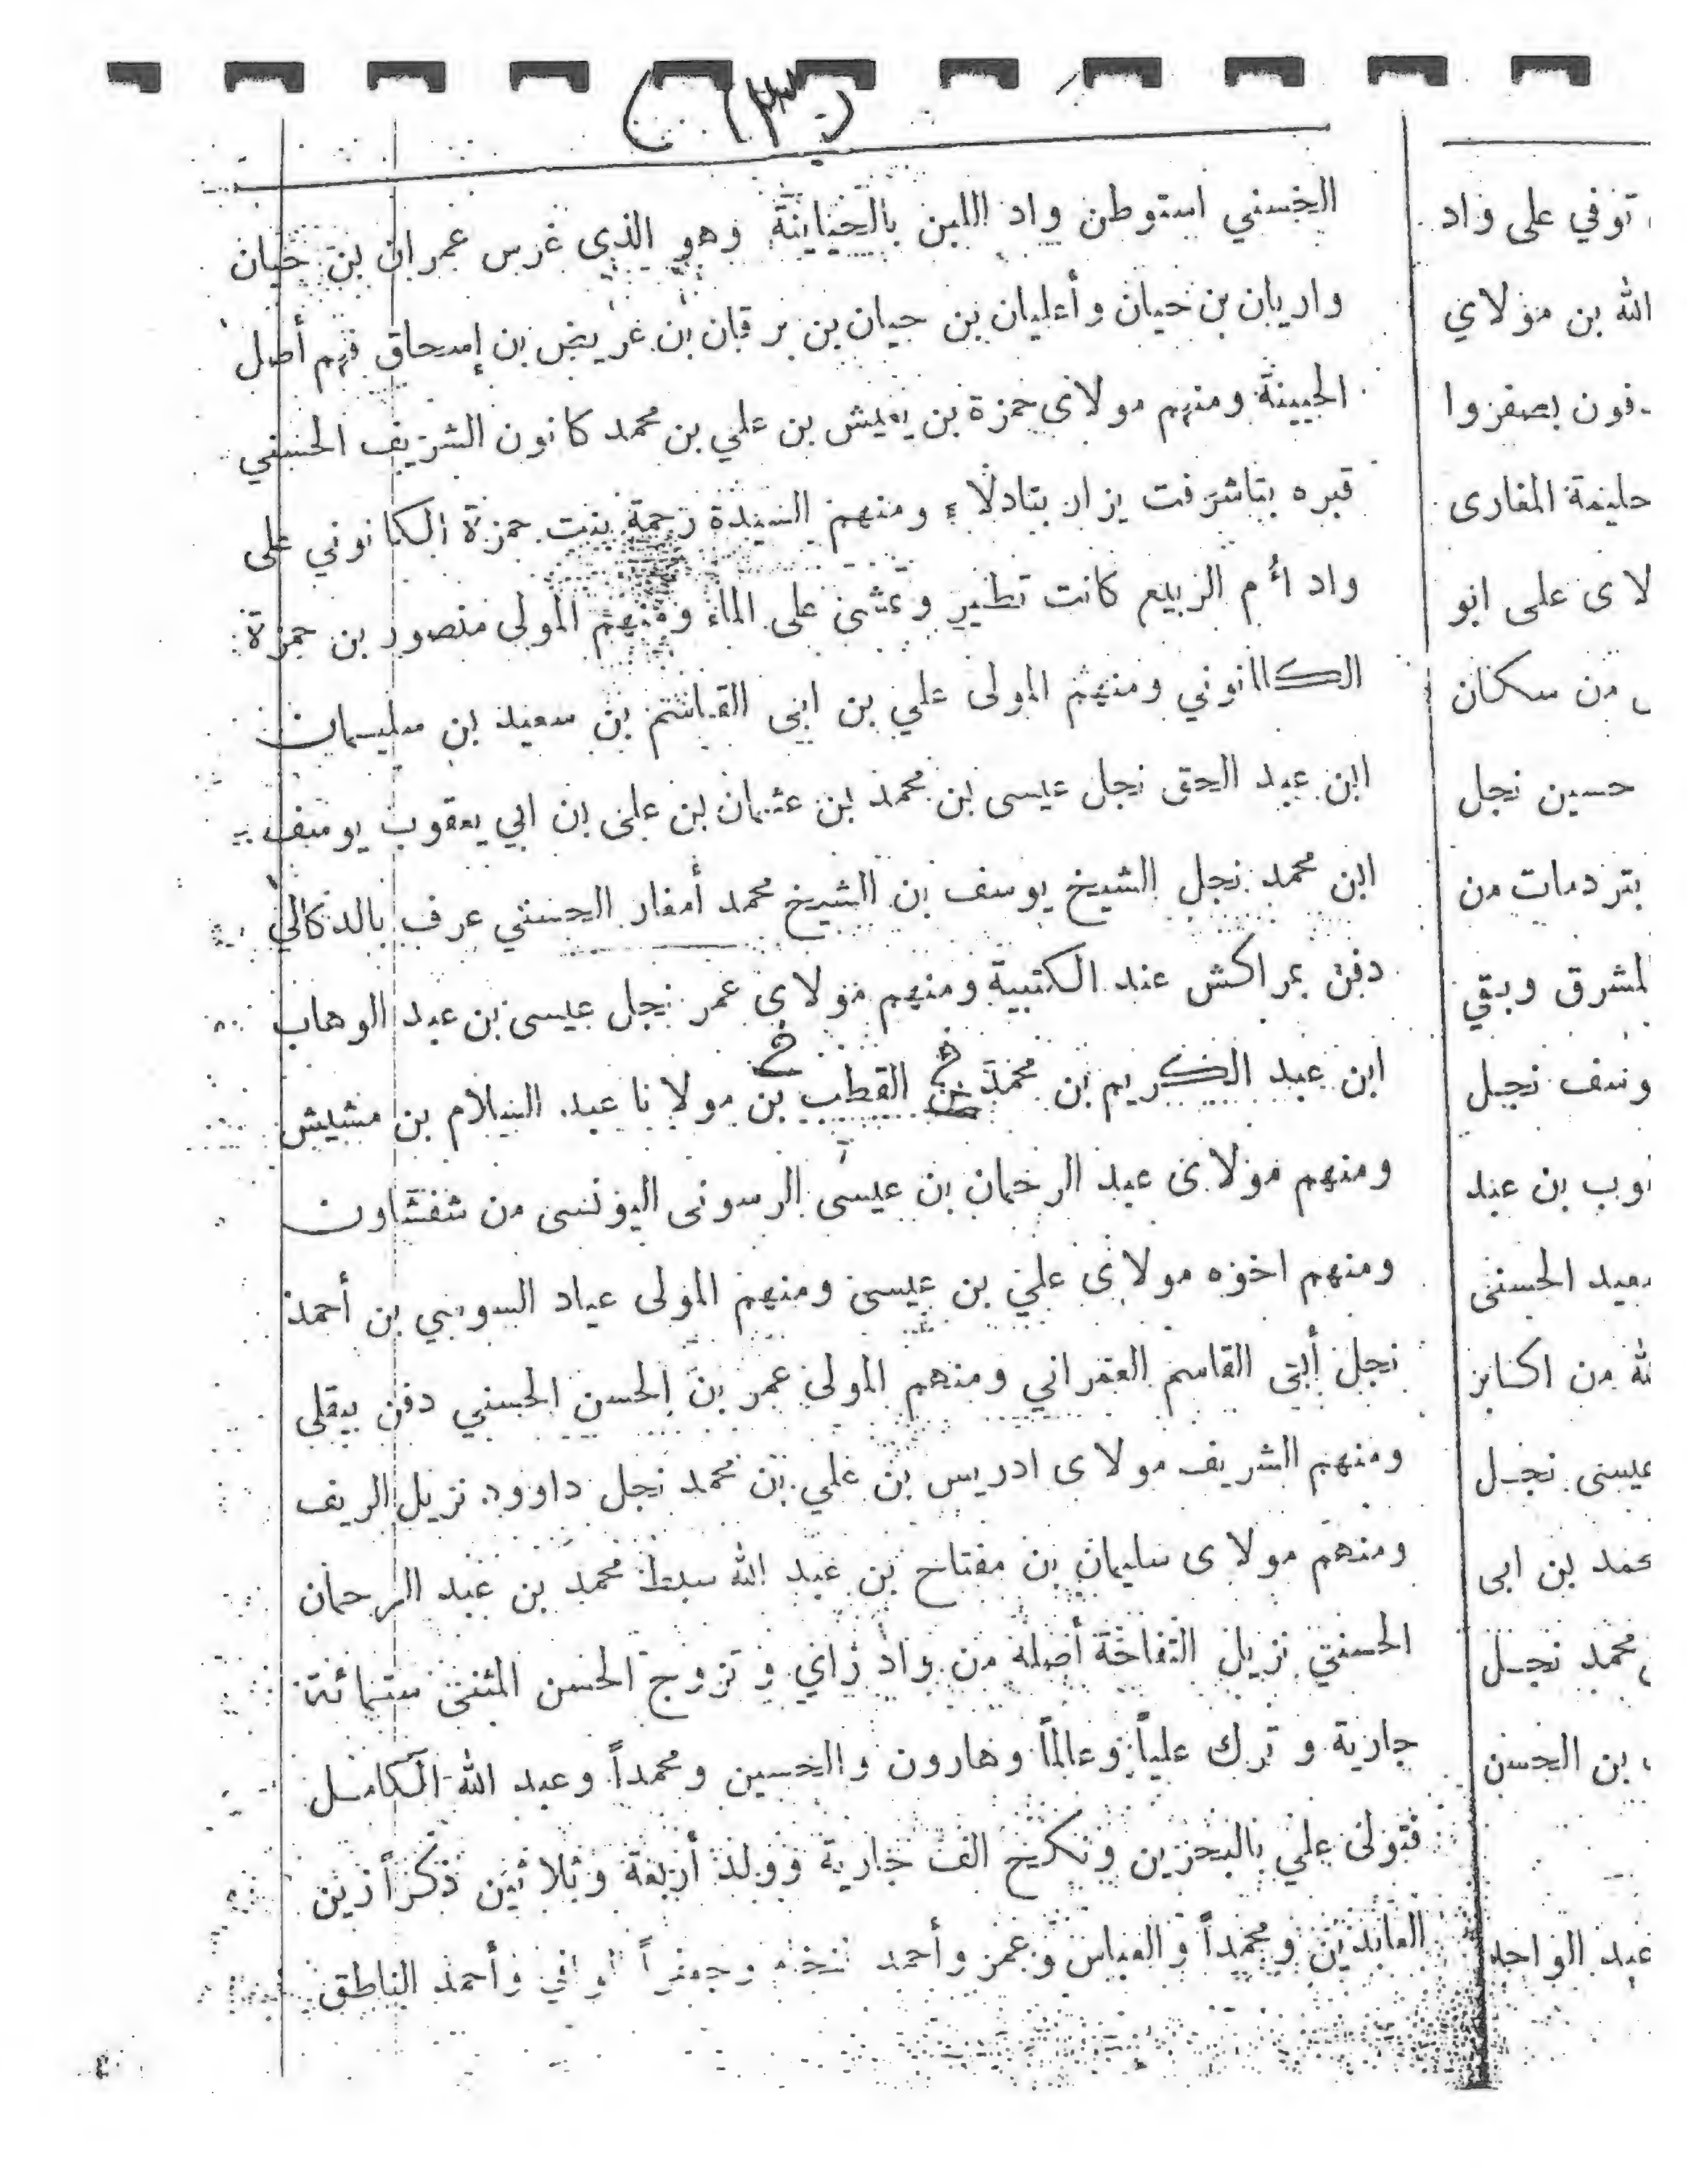 الحسني استوطن واد اللبن بالحياينة وهو الذى غرس عمران بن حيان
واريان بن حيان وأعليان بن حيان بن برقان بن غريض بن إسحاق فهم أصل
الجبينة ومنهم مولاى حمزة بن يعيش بن علي بن محمد كانون الشريف الحسني
قبره بتاشرفت يزان بتادلاء ومنهم السيدة رحمة بنت حمزة الكانوني على
واد أم الربيع كانت تطير وتمشى على الماء ومنهم المولى منصور بن حمزة
الكانوني ومنهم المولى علي بن ابى القاسم بن سعيد بن سليمان
ابن عبد الحق نجل عيسى بن محمد بن عثمان بن على بن ابي يعقوب يوسف
ابن محمد نجل الشيخ يوسف بن الشيخ محمد أمغار الحسني عرف بالدكالي
دفن بمراكش عند الكتبية ومنهم مولاى عمر نجل عيسى بن عبد الوهاب
ابن عبد الكريم بن محمد القطب بن مولانا عبد السلام بن مشيش
ومنهم مولاى عبد الرحمان بن عيسى الرسونى اليونسى من شفشاون
ومنهم اخوه مولاى علي بن عيسى ومنهم المولى عياد السوسي بن أحمد
نجل أبى القاسم العمراني ومنهم المولى عمر بن الحسن الحسني دفن بيقلى
ومنهم الشريف مولاى ادريس بن علي بن محمد نجل داوود نزيل الريف
ومنهم مولاى سليمان بن مفتاح بن عبد الله سبط محمد بن عبد الرحمان
الحسني نزيل التفاحة أصله من واد زاي و تزوج الحسن المثنى ستمائة
جارية و ترك علياً وعالماً وهارون والحسين ومحمداً وعبد الله الكامل
فتولى علي بالبحرين ونكح الف جارية وولد أربعة وثلاثين ذكراً زين
العابدين ومحمداً والعباس وعمر وأحمد وجعفراً وأحمد الناطق
توفي على واد
الله بن مولاي
دفون بصفروا
حليمة المغارى
لاى على ابو
من سكان
حسين نجل
بتردمات من
لمشرق وبقي
وسف نجل
وب بن عبد
سعيد الحسنى
لله من اكابر
عيسى نجل
حمد بن ابى
محمد نجل
بن الحسن
عبد الواحد